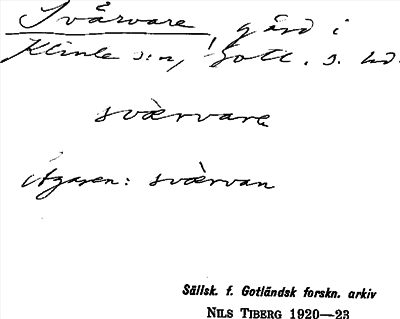 Svårvare, gård i
Klinte s:n, Gotl. s. hd.
svàrvarε
Ägaren: svàrvan
Sällsk. f. Gotländsk forskn. arkiv
NILS TIBERG 1920—23